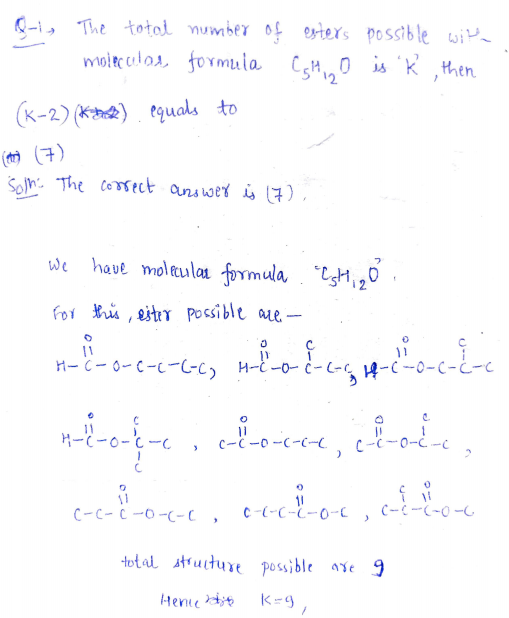 Q-1, The total number of esters possible with
molecular formula C5H12O is 'K', then
(K-2) equals to
(7)
Soln: The correct answer is (7).
We have molecular formula "C5H12O".
For this, ester possible are —
H-C(=O)-O-C-C-C-C, H-C(=O)-O-C(-C)-C-C, H-C(=O)-O-C-C(-C)-C
H-C(=O)-O-C(-C)(-C)-C, C-C(=O)-O-C-C-C, C-C(=O)-O-C(-C)-C,
C-C-C(=O)-O-C-C, C-C-C-C(=O)-O-C, C-C(-C)-C(=O)-O-C
total structure possible are 9
Hence K=9,